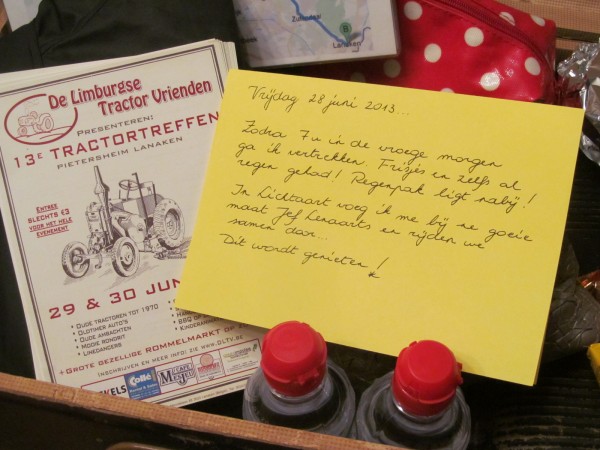 De Limburgse
Tractor Vrienden
PRESENTEREN:
13e TRACTORTREFFEN
PIETERSHEIM LANAKEN
ENTREE
SLECHTS €3
VOOR HET HELE
EVENEMENT
29 & 30 JUN
• OUDE TRACTOREN TOT 1970
• OLDTIMER AUTO'S
• OUDE AMBACHTEN
• MOOIE RONDRIT
• LINEDANCERS
+GROTE GEZELLIGE ROMMELMARKT OP
INSCHRIJVEN EN MEER INFO: ZIE WWW.DLTV.
KELS
Collé
Vrijdag 28 juni 2013...
Zodra 7u in de vroege morgen
ga ik vertrekken. Frisjes en zelfs al
regen gehad! Regenpak ligt nabij!
In Lichtaart voeg ik me bij ne goeie
maat Jef Lenaarts en rijden we
samen door...
Dit wordt genieten!
Zutendaal
B
Lanaken